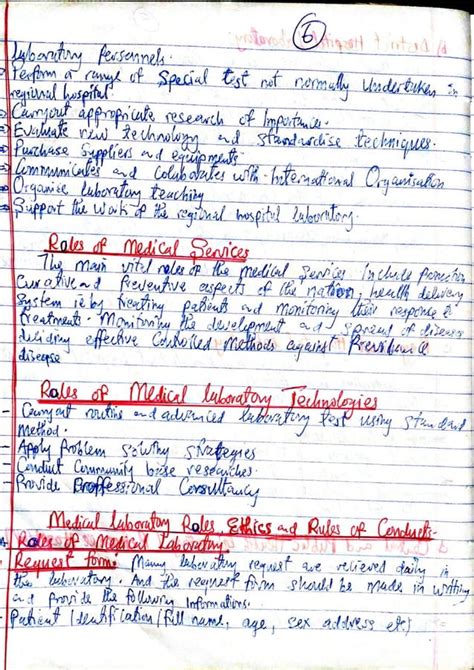 6
Laboratory Personnels.
⇒ Perform a range of Special test not normally Undertaken in
regional hospital
⇒ Carryout appropricate research of Importance.
⇒ Evaluate new technology and standardise techniques.
⇒ Purchase Suppliers and equipments
⇒ Communicates and Colaborates with International Organisation
⇒ Organise laboratory teaching
⇒ Support the Work of the regional hospital laboratory.
Roles of Medical Services
The main vital roles of the medical Services include
Curative and Preventive aspects of the nation, health delivery
System ie by treating patients and monitoring their response to
treatments. Monitoring the development and Spread of diseases
deciding effective Controlled Methods against
disease
Roles of Medical laboratory Technologies
- Carryout routine and advanced laboratory test using Standard
Method.
- Apply Problem Solving Strategies
- Conduct Community base researches.
- Provide Professional Consultancy
Medical laboratory Roles Ethics and Rules of Conducts.
Roles of Medical laboratory
Request form: Many laboratory request are recieved daily in
the laboratory. And the request form should be made in writing
and provide the following Informations.
Patient Identification (full name, age, sex address etc)